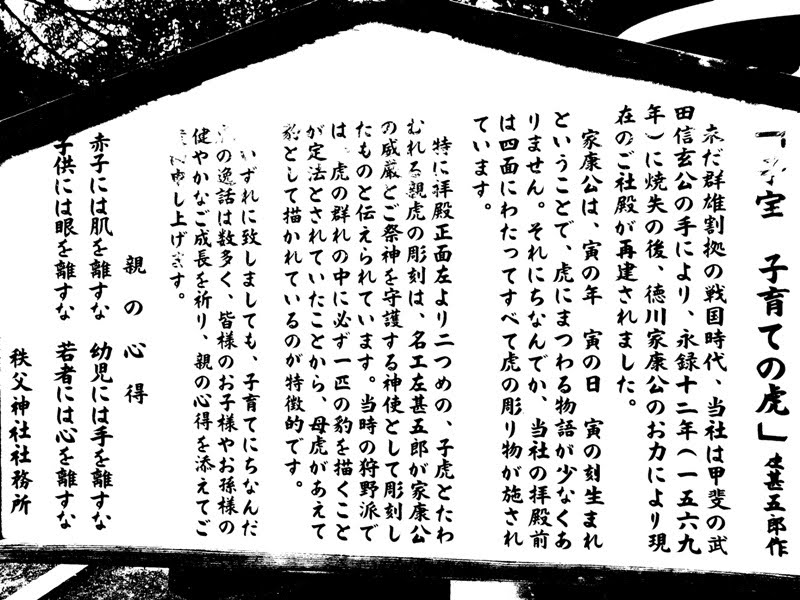 「子宝　子育ての虎」左甚五郎作
未だ群雄割拠の戦国時代、当社は甲斐の武
田信玄公の手により、永録十二年(一五六九
年)に焼失の後、徳川家康公のお力により現
在のご社殿が再建されました。
家康公は、寅の年　寅の日　寅の刻生まれ
ということで、虎にまつわる物語が少なくあ
りません。それにちなんでか、当社の拝殿前
は四面にわたってすべて虎の彫り物が施され
ています。
特に拝殿正面左より二つめの、子虎とたわ
むれる親虎の彫刻は、名工左甚五郎が家康公
の威厳とご祭神を守護する神使として彫刻し
たものと伝えられています。当時の狩野派で
は　虎の群れの中に必ず一匹の豹を描くこと
が定法とされていたことから、母虎があえて
豹として描かれているのが特徴的です。
いずれに致しましても、子育てにちなんだ
の逸話は数多く、皆様のお子様やお孫様の
健やかなご成長を祈り、親の心得を添えてご
申し上げます。
親の心得
赤子には肌を離すな　幼児には手を離すな
子供には眼を離すな　若者には心を離すな
秩父神社社務所